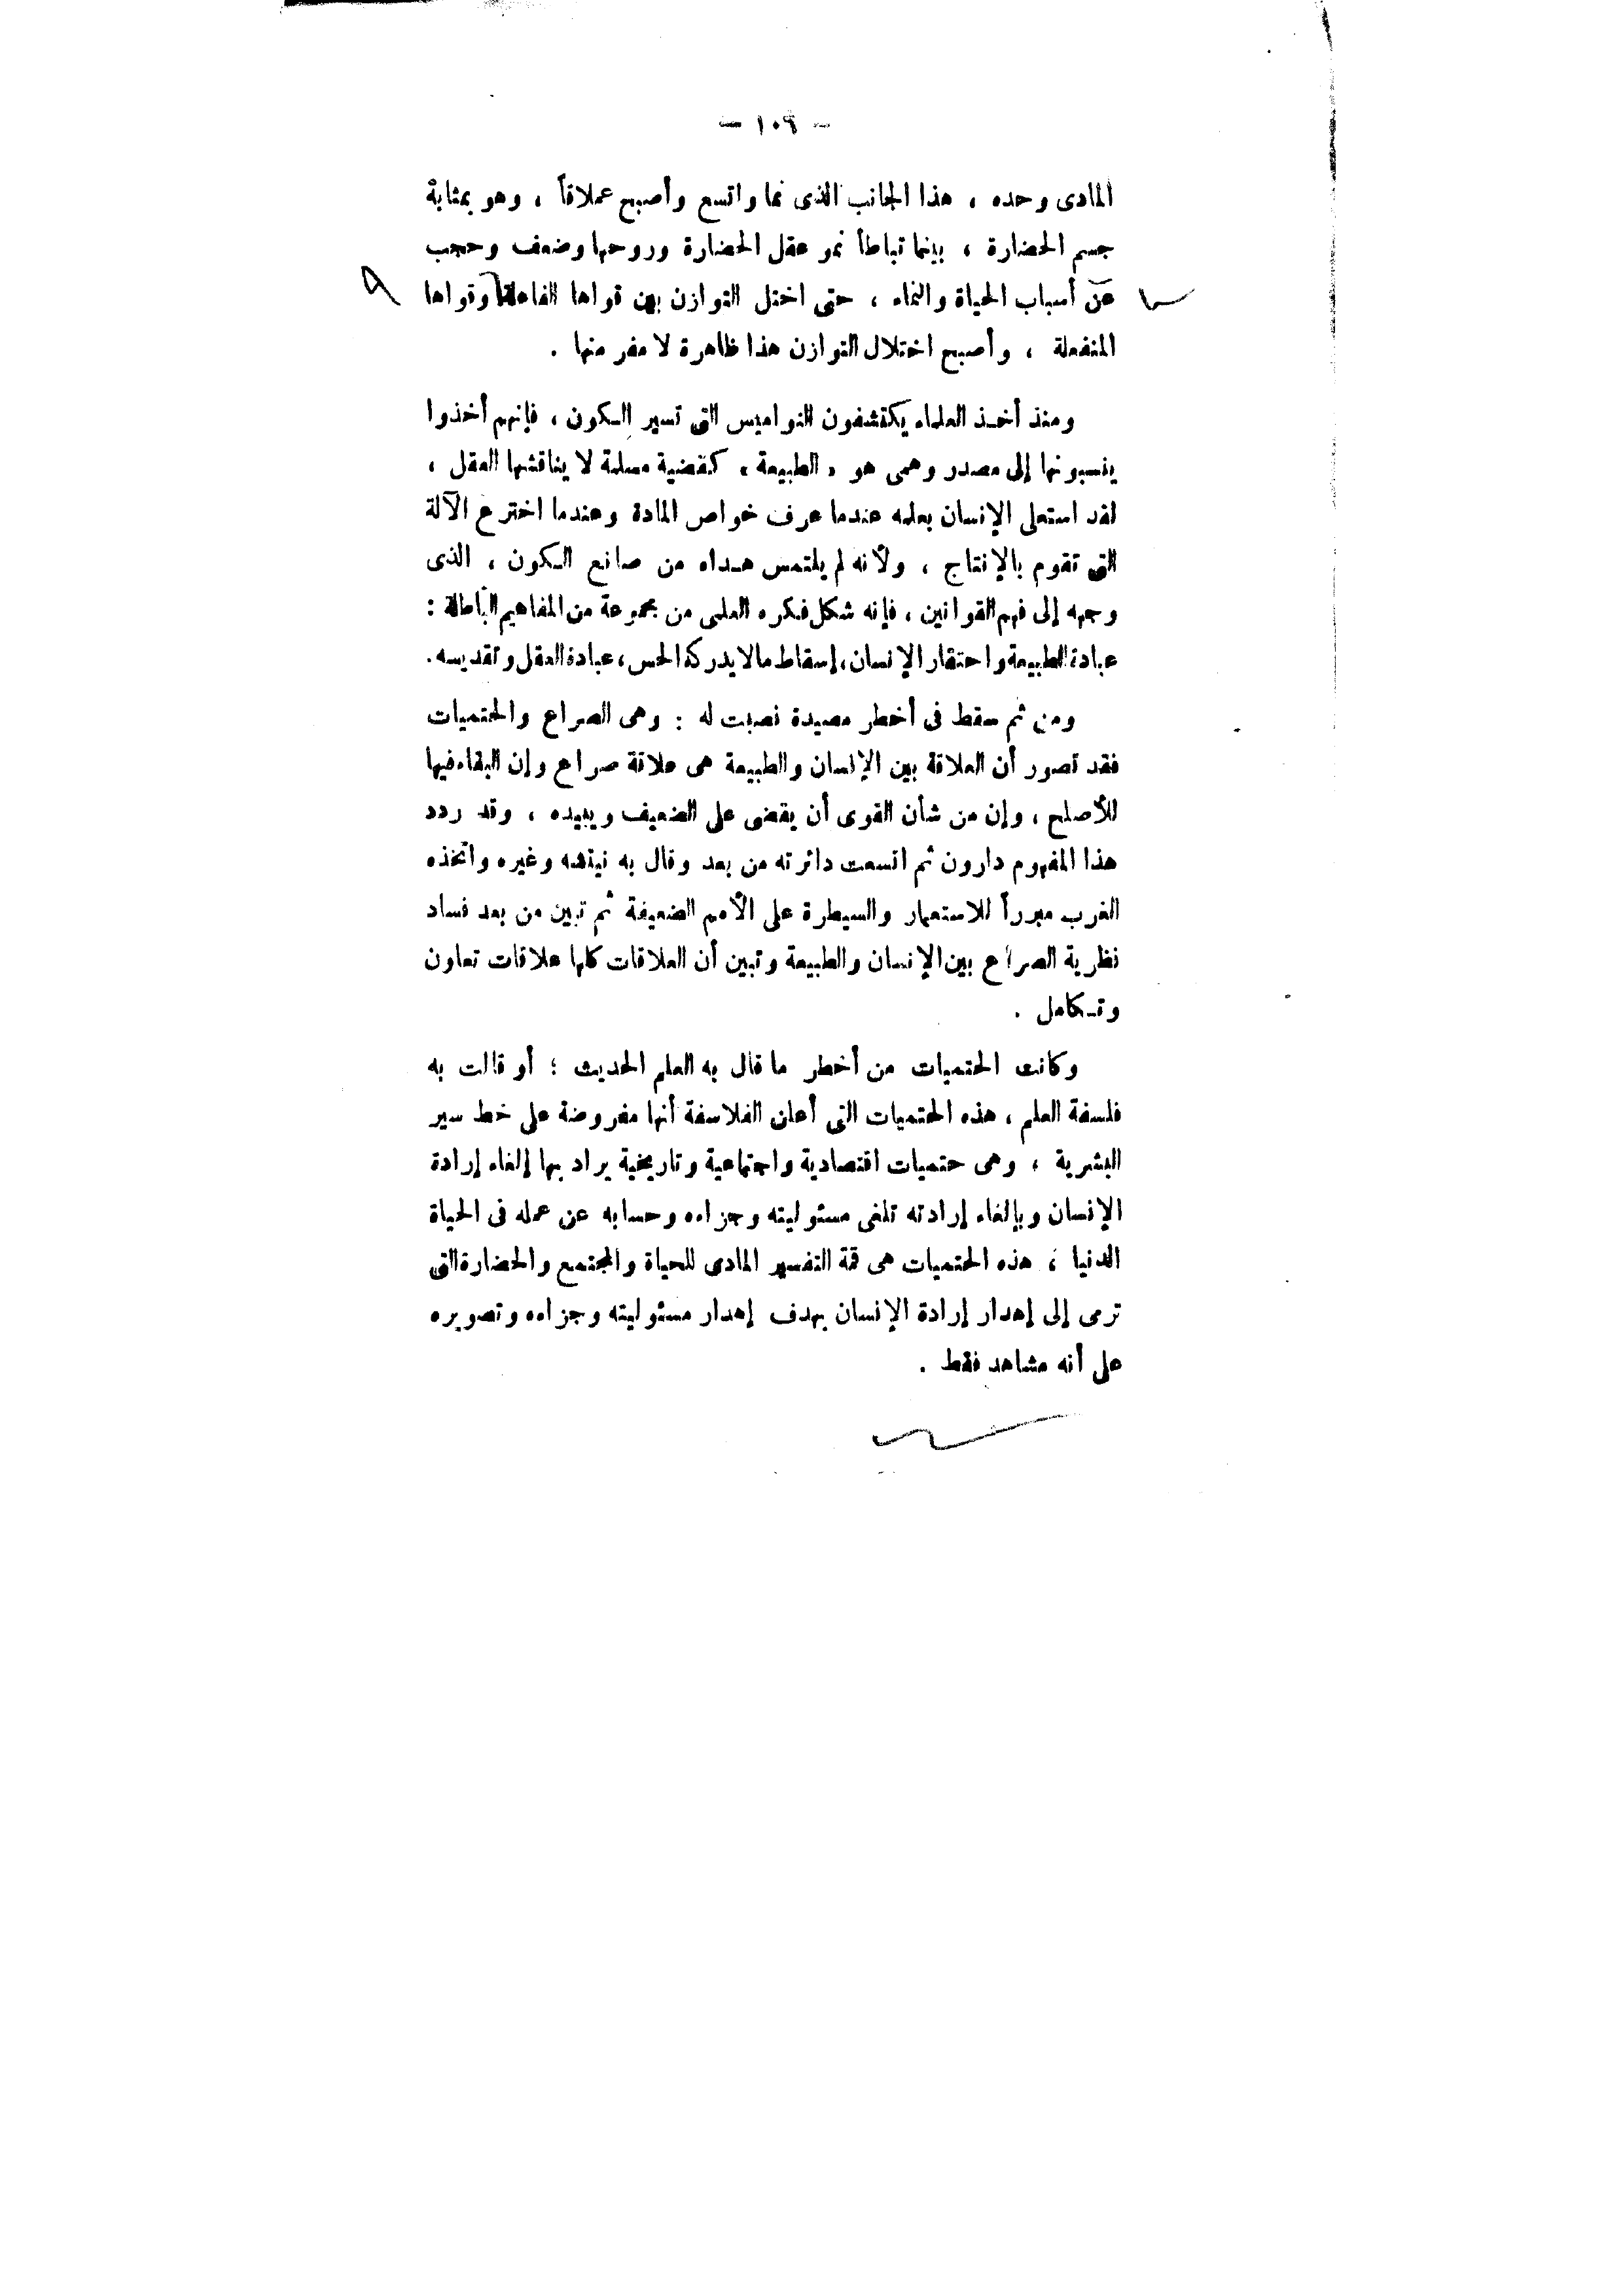 - ١٠٩ -
المادى وحده ، هذا الجانب الذى نما واتسع وأصبح عملاقاً ، وهو بمثابة
جسم الحضارة ، بينما تباطأ نمو عقل الحضارة وروحها وضعف وحجب
عن أسباب الحياة والنماء ، حتى اختل التوازن بين قواها الفاعلة وقواها
المنفعلة ، وأصبح اختلال التوازن هذا ظاهرة لا مفر منها .
ومنذ أخذ العلماء يكتشفون النواميس التى تسير الكون ، فإنهم أخذوا
ينسبونها إلى مصدر وهمى هو « الطبيعة » كقضية مسلمة لا يناقشها العقل ،
لقد استعلى الإنسان بعلمه عندما عرف خواص المادة وعندما اخترع الآلة
التى تقوم بالإنتاج ، ولأنه لم يلتمس هداه من صانع الكون ، الذى
وجهه إلى فهم القوانين ، فإنه شكل فكره العلمى من مجموعة من المفاهيم الباطلة :
عبادة الطبيعة واحتقار الإنسان ، إسقاط مالا يدركه الحس ، عبادة العقل وتقديسه .
ومن ثم سقط فى أخطر مصيدة نصبت له : وهى الصراع والحتميات
فقد تصور أن العلاقة بين الإنسان والطبيعة هى علاقة صراع وإن البقاء فيها
للأصلح ، وإن من شأن القوى أن يقضى على الضعيف ويبيده ، وقد ردد
هذا المفهوم دارون ثم اتسعت دائرته من بعد وقال به نيتشه وغيره واتخذه
الغرب مبرراً للاستعمار والسيطرة على الأمم الضعيفة ثم تبين من بعد فساد
نظرية الصراع بين الإنسان والطبيعة وتبين أن العلاقات كلها علاقات تعاون
وتكامل .
وكانت الحتميات من أخطر ما قال به العلم الحديث ؛ أو قالت به
فلسفة العلم ، هذه الحتميات التى أعلن الفلاسفة أنها مفروضة على خط سير
البشرية ، وهى حتميات اقتصادية واجتماعية وتاريخية يراد بها إلغاء إرادة
الإنسان وبإلغاء إرادته تلغى مسئوليته وجزاءه وحسابه عن عمله فى الحياة
الدنيا ، هذه الحتميات هى قمة التفسير المادى للحياة والمجتمع والحضارة التى
ترمى إلى إهدار إرادة الإنسان بهدف إهدار مسئوليته وجزاءه وتصويره
على أنه مشاهد فقط .